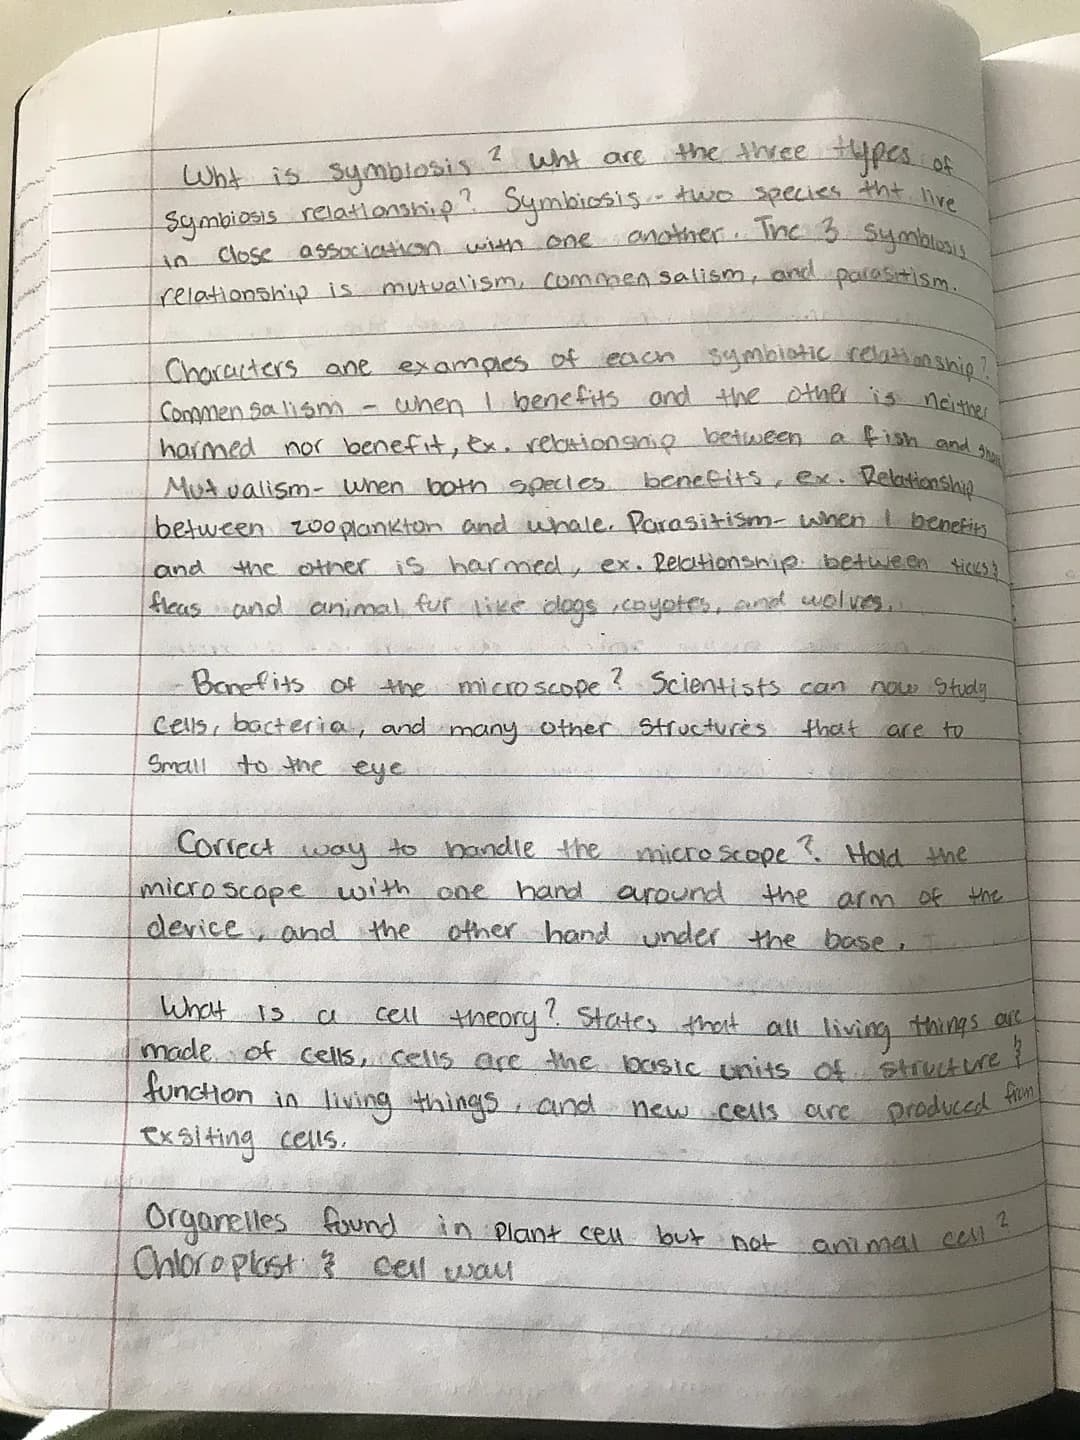 Wht is symbiosis? Wht are the three types of
Symbiosis relationship? Symbiosis - two species tht live
in close association with one another. The 3 symbiosis
relationship is mutualism, commensalism, and parasitism.
Characters ane examples of each symbiotic relationship?
Commensalism - when 1 benefits and the other is neither
harmed nor benefit, ex. relationship between a fish and
Mutualism - when both species benefits, ex. Relationship
between zooplankton and whale. Parasitism - when 1 benefits
and the other is harmed, ex. Relationship between ticks &
fleas and animal fur like dogs, coyotes, and wolves.
- Benefits of the microscope? Scientists can now study
cells, bacteria, and many other structures that are to
small to the eye
Correct way to handle the microscope? Hold the
microscope with one hand around the arm of the
device, and the other hand under the base.
What is a cell theory? States that all living things are
made of cells, cells are the basic units of structure &
function in living things, and new cells are produced from
exsiting cells.
Organelles found in plant cell but not animal cell?
Chloroplast & cell wall